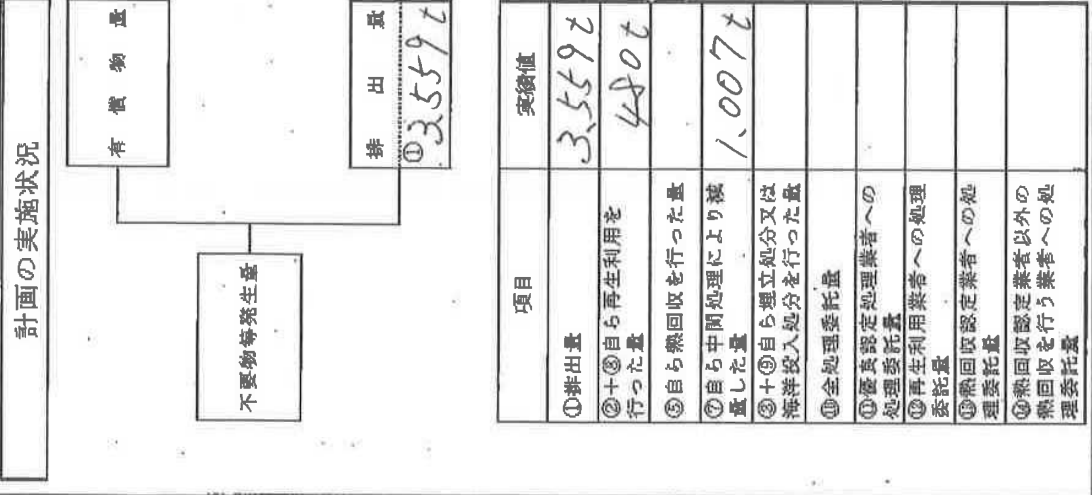 計画の実施状況
有償物量
不要物等発生量
排出量
①3,559t
項目 実績値
①排出量 3,559t
②+⑧自ら再生利用を
行った量 480t
⑤自ら熱回収を行った量
⑦自ら中間処理により減
量した量 1,007t
③+⑨自ら埋立処分又は
海洋投入処分を行った量
⑩全処理委託量
⑪優良認定処理業者への
処理委託量
⑫再生利用業者への処理
委託量
⑬熱回収認定業者への処
理委託量
⑭熱回収認定業者以外の
熱回収を行う業者への処
理委託量